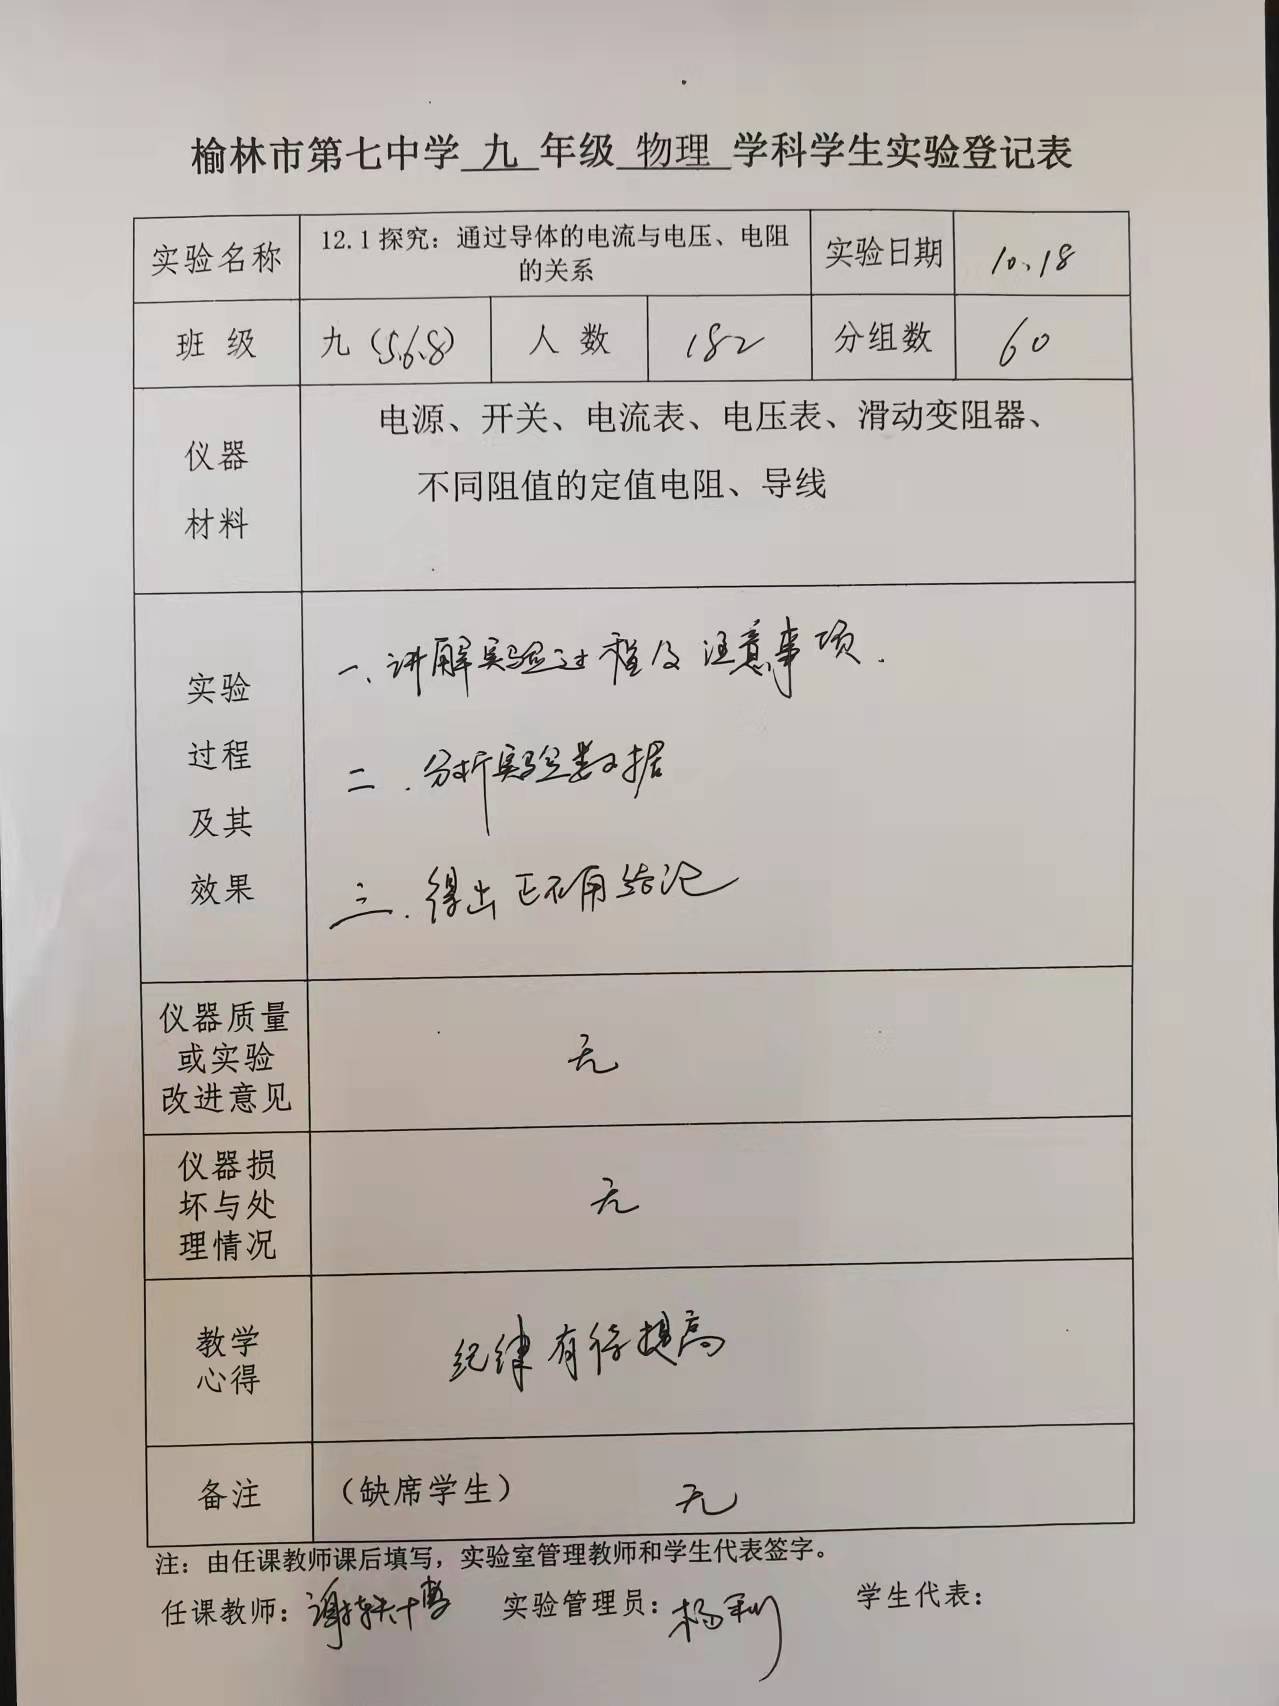 榆林市第七中学 九 年级 物理 学科学生实验登记表
实验名称 12.1 探究：通过导体的电流与电压、电阻的关系 实验日期 10.18
班 级 九（5.6.8） 人 数 182 分组数 60
仪器材料
电源、开关、电流表、电压表、滑动变阻器、
不同阻值的定值电阻、导线
实验过程及其效果
一、讲解实验过程及注意事项.
二．分析实验数据
三．得出正确结论
仪器质量或实验改进意见 无
仪器损坏与处理情况 无
教学心得 纪律有待提高
备注 （缺席学生） 无
注：由任课教师课后填写，实验室管理教师和学生代表签字。
任课教师： 实验管理员：杨利 学生代表：